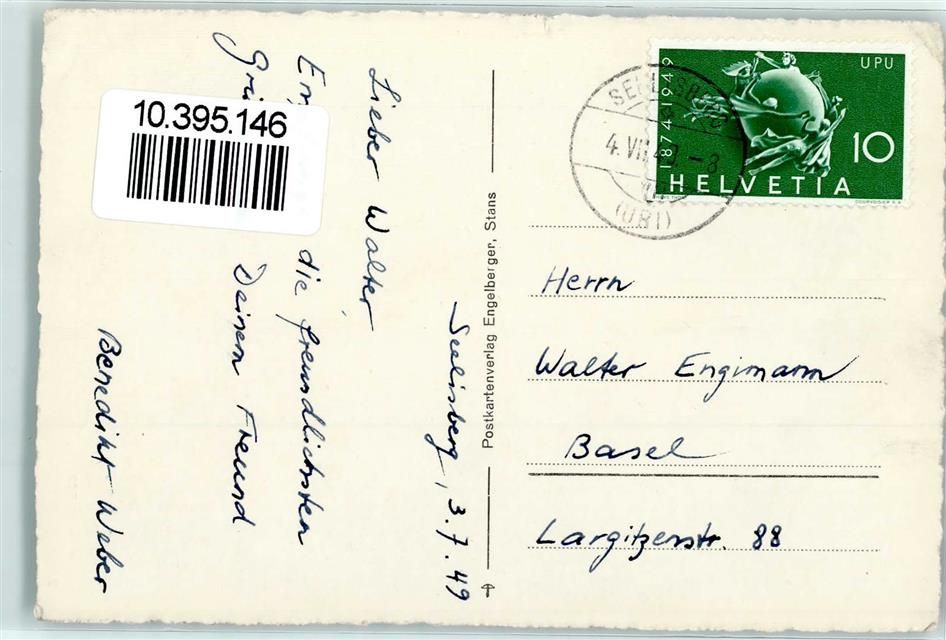 Seelisberg, 3.7.49
Lieber Walter,
die freundlichsten
Deinem Freund
Benedikt Weber
10.395.146
Postkartenverlag Engelberger, Stans
1874.1949
UPU
10
HELVETIA
COURVOISIER S.A.
4. VII. 49. - 8
(URI)
Herrn
Walter Engimann
Basel
Largitzenstr. 88